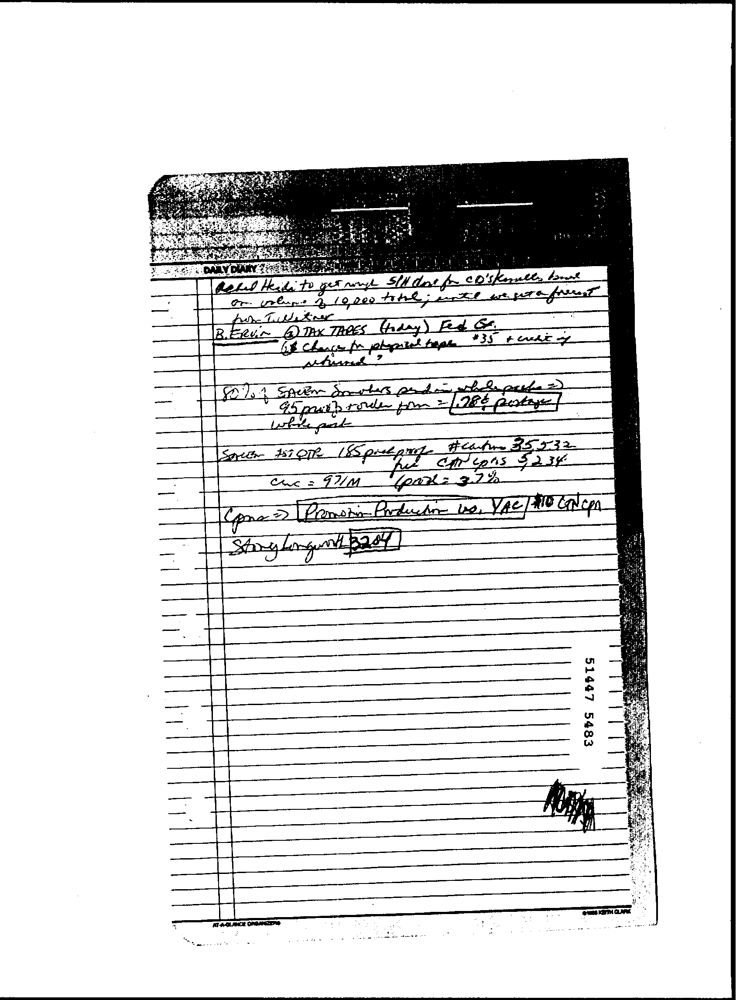 DAILY DIARY
Asked Heidi to get rough S/H cost for CD's based
on volume of 10,000 total; until we get a forecast
from T.
B. ERVIN ② TAX TAPES (today) Fed Ex.
Charge for physical tapes $35 + credit if
returned?
80% of SALEM Smokers send in whole packs =>
95 proofs + order form = .78¢ postage
whole pack
SALEM 1ST QTR 185 pack proofs # cartons 35,532
free CTN cpns 5,234
circ = 971M = 3.7%
Cpns => Promotion Production vs. YAC $10 CTN cpn
Longwork 3204
51447 5483
AT-A-GLANCE ORGANIZERS
KEITH CLARK